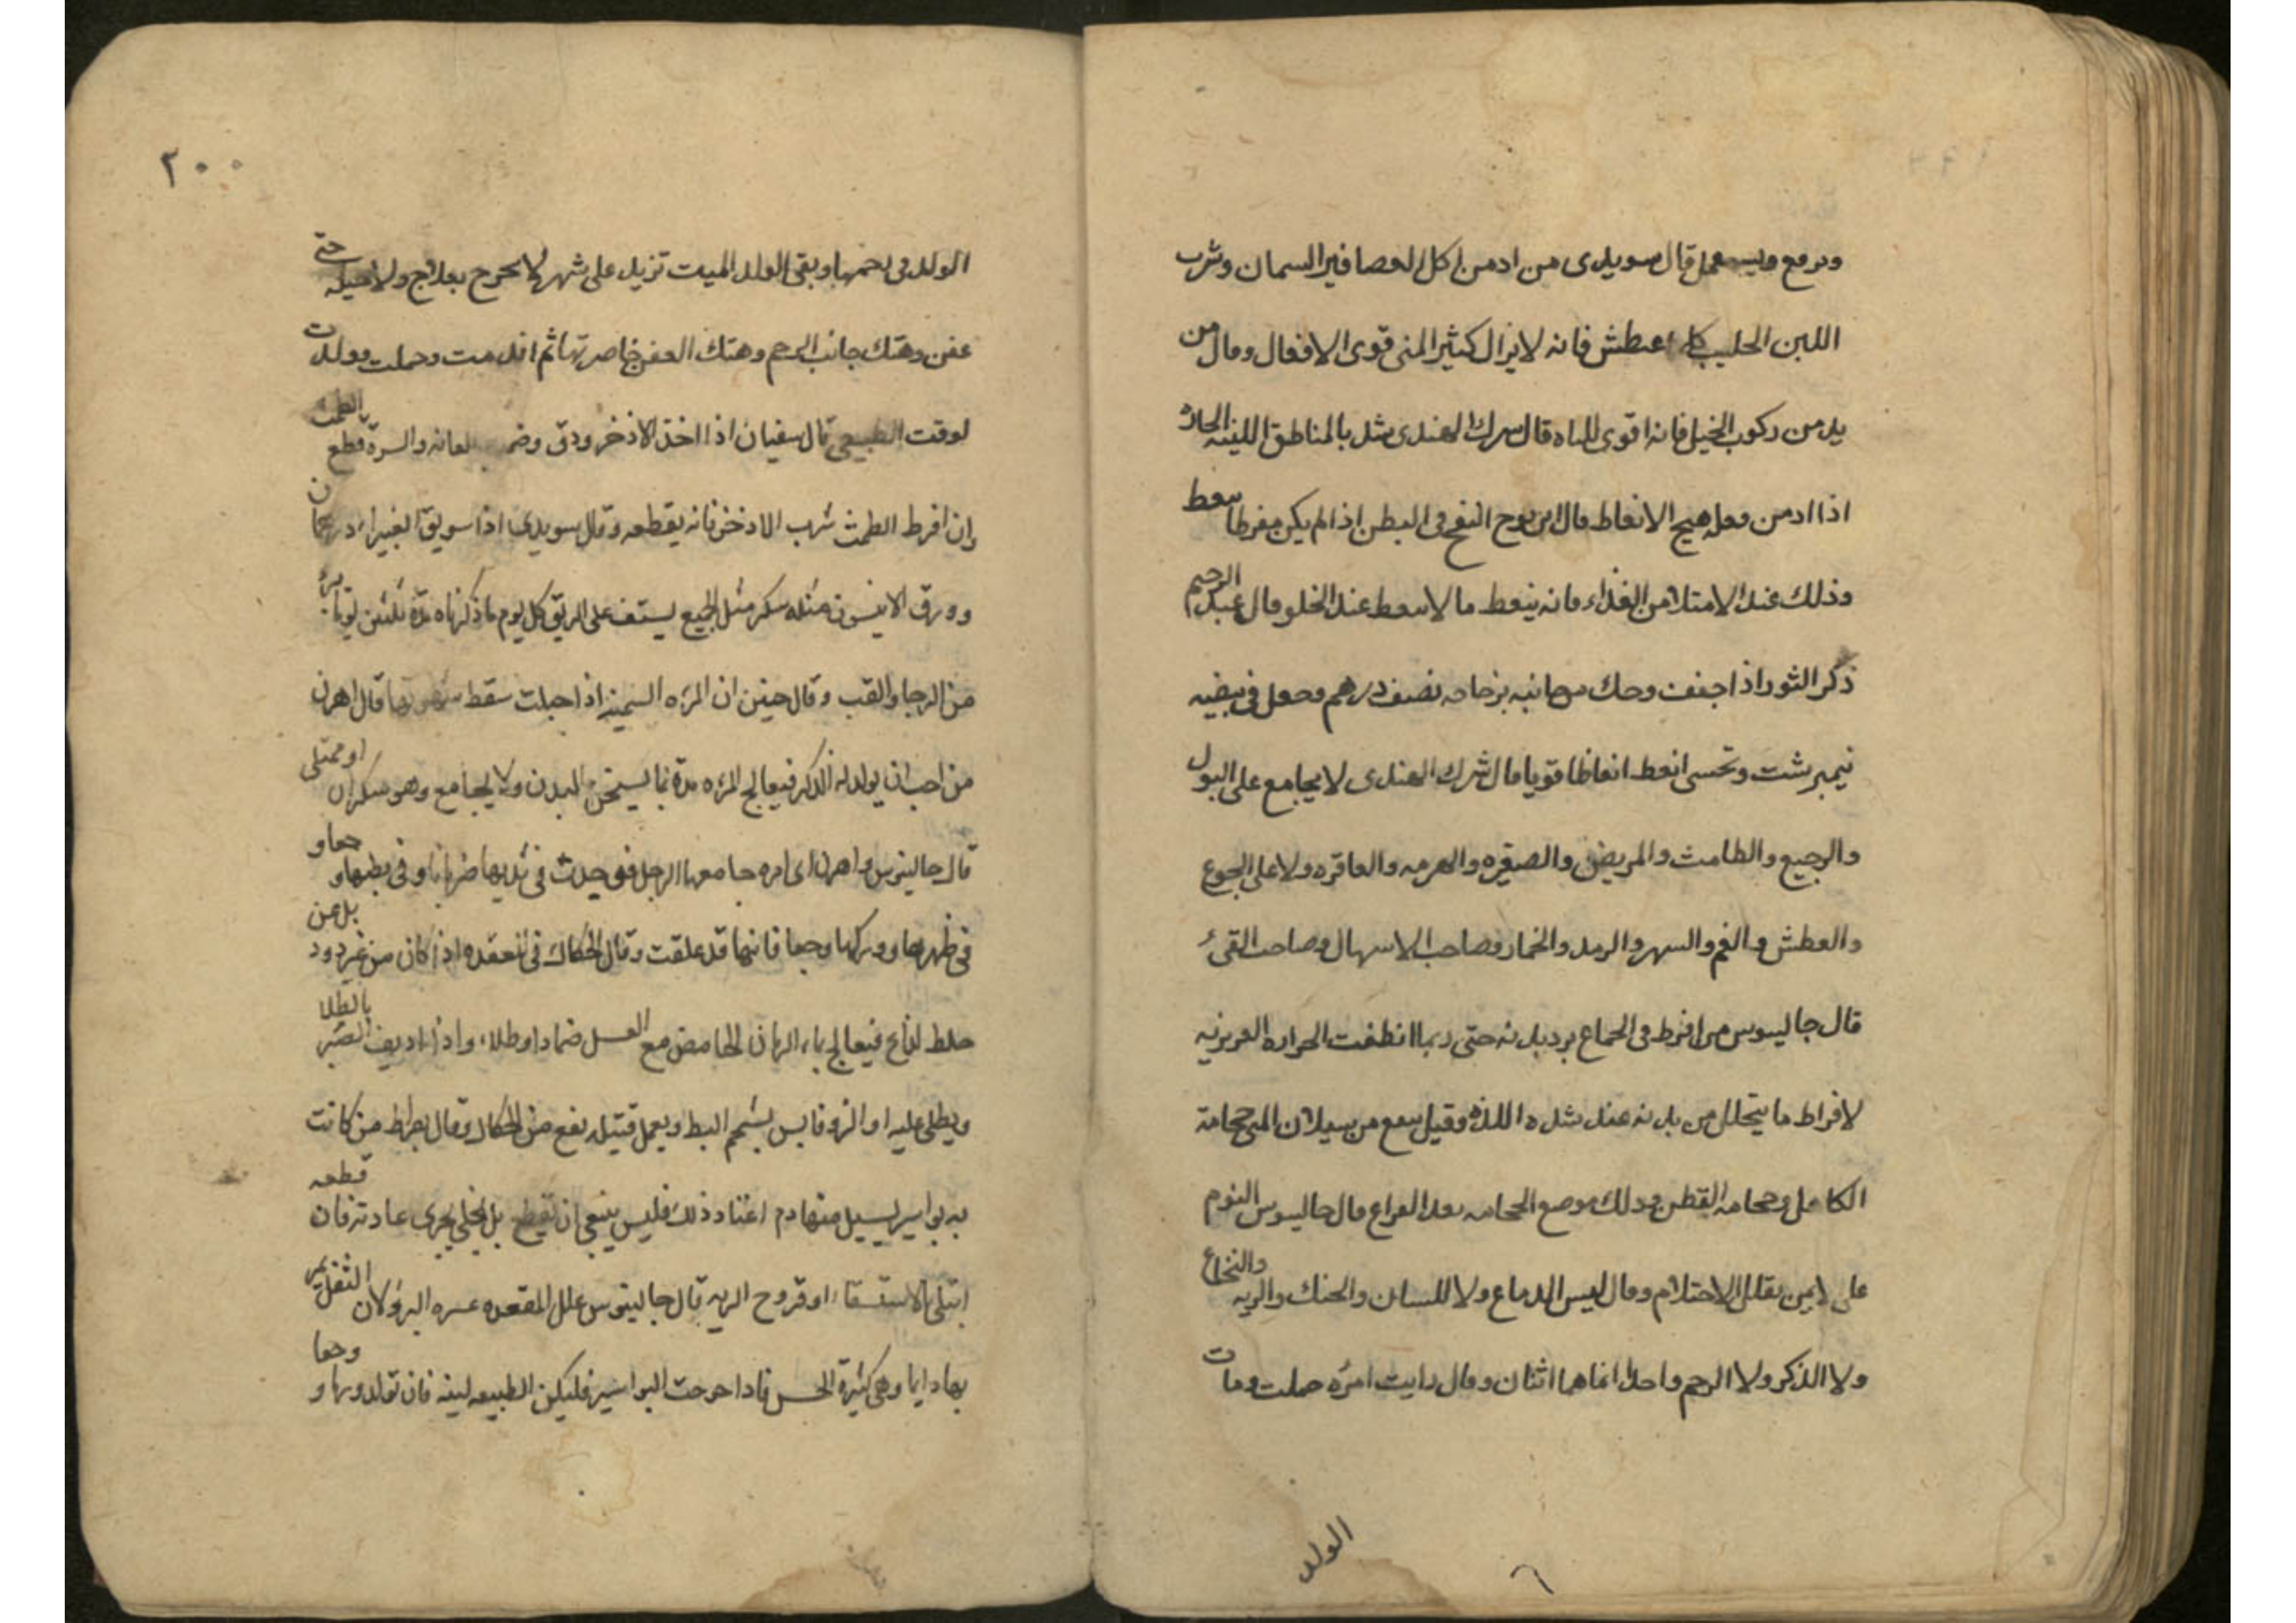 ويرفع ويستعمل قال سويدى من ادمن اكل العصافير السمان وشرب
اللبن الحليب كلما عطش فانه لا يزال كثير المنى قوى الافعال وقال من
يدمن ركوب الخيل فانه اقوى للباه قال سرك الهندى شد بالمناطق اللينه الجلد
اذا ادمن فعله هيج الانعاظ قال ابن نوح النفخ فى البطن اذا لم يكن مفرطا ينعظ
وذلك عند الامتلا من الغذاء فانه ينعظ ما لا ينعظ عند الخلو وقال عبد الرحيم
ذكر الثور اذا جفف وحك من جانبيه بزجاجه نصف درهم وجعل فى بيضه
نيمبرشت وتحسى انعظ انعاظا قويا قال شرك الهندى لا يجامع على البول
والرجيع والطامث والمريض والصغيره والهرمه والعاقره ولا على الجوع
والعطش والغم والسهر والرمد والخمار وصاحب الاسهال وصاحب القىء
قال جالينوس من افرط فى الجماع برد بدنه حتى ربما انطفت الحراره الغريزيه
لافراط ما يتحلل من بدنه عند شده اللذه وقيل ينفع من سيلان المنى حجامة
الكاهل وحجامه القطن وذلك موضع الحجامه بعد الفراغ قال جالينوس النوم
على الايمن يقلل الاحتلام وقال ليس الدماغ ولا اللسان والحنك والريه والنخاع
ولا الذكر ولا الرحم واحد انما هما اثنان وقال رايت امرئه حملت ومات
الولد
٢٠٠
الولد فى رحمها وبقى الولد الميت تزيد على شهر لا يخرج بعلاج ولا حيله حتى
عفن وهتك جانب الرحم وهتك العفن خاصرتها ثم اندمت وحملت وولدت
لوقت الطبيعى قال سفيان اذا اخذ الاذخر ودق وضمد العانه والسرة قطع الطمث
وان افرط الطمث شرب الاذخر فانه يقطعه وقال سويدى اذا سويق الغبيراء درهمان
وورق الانيسون مثله سكر مثل الجميع يستف على الريق كل يوم ما ذكرناه مدة ثلثين يوما برء
من الرجا والقب وقال حنين ان المرءه السمينه اذا حبلت سقط قال اهرن
من احب ان يولد له الذكر فيعالج المرءه مدة بما يسخن البدن ولا يجامع وهو سكران او ممتلى
قال جالينوس واهرن اى امره جامعها الرجل فحدث فى ثديها ضربانا وفى بطنها وجعا و
فى ظهرها ووركها وجعا فانها قد علقت وقال الحكاك فى المقعده اذا كان من غير دود بل عن
خلط لذاع فيعالج بماء الرمان الحامض مع العسل ضمادا وطلاء واذا اديف الصبر بالطلا
ويطلى عليه او الزوفا يبس بشحم البط ويعمل فتيله نفع من الحكاك وقال بقراط من كانت
به بواسير يسيل منها دم اعتاد ذلك فليس ينبغى ان تقطع بل يخلى يجرى عادته فان قطعه
ابتلى بالاستسقاء او قروح الريه قال جالينوس علل المقعده عسره البرؤ لان الثفل يمر
بها دايما وهى كثيرة الحس فاذا خرجت البواسير فليكن الطبيعه لينه فان تولد ورما و وجعا